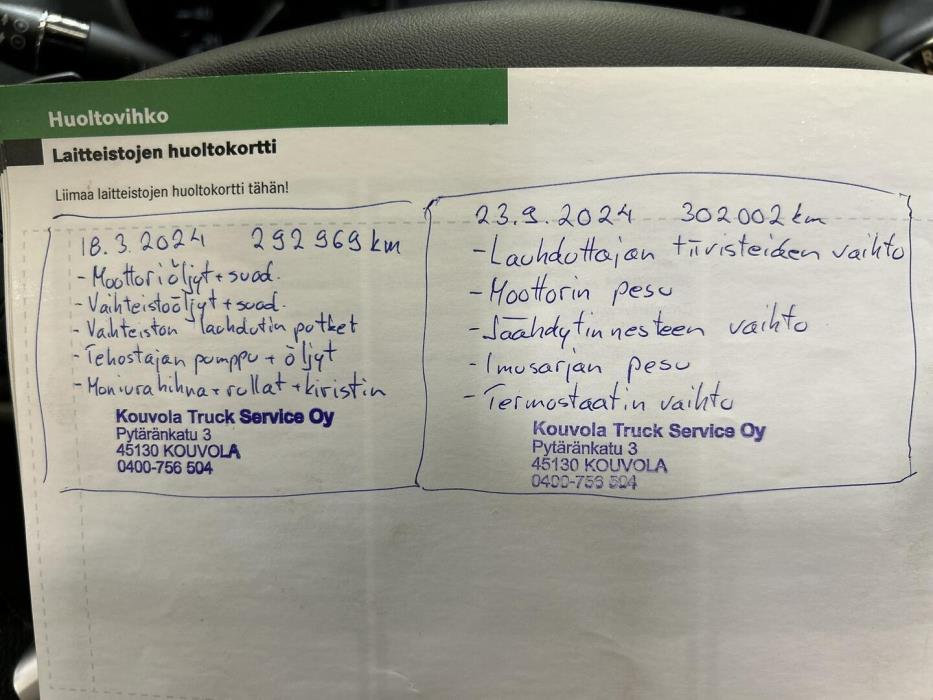 Huoltovihko
Laitteistojen huoltokortti
Liimaa laitteistojen huoltokortti tähän!
18.3.2024 292 969 km
- Moottoriöljyt + suod.
- Vaihteistoöljyt + suod.
- Vaihteiston lauhdutin potket
- Tehostajan pumppu + öljyt
- Moniurahihna + rullat + kiristin
Kouvola Truck Service Oy
Pytäränkatu 3
45130 KOUVOLA
0400-756 504
23.9.2024 302002 km
- Lauhduttajan tiivisteiden vaihto
- Moottorin pesu
- Jäähdytinnesteen vaihto
- Imusarjan pesu
- Termostaatin vaihto
Kouvola Truck Service Oy
Pytäränkatu 3
45130 KOUVOLA
0400-756 504